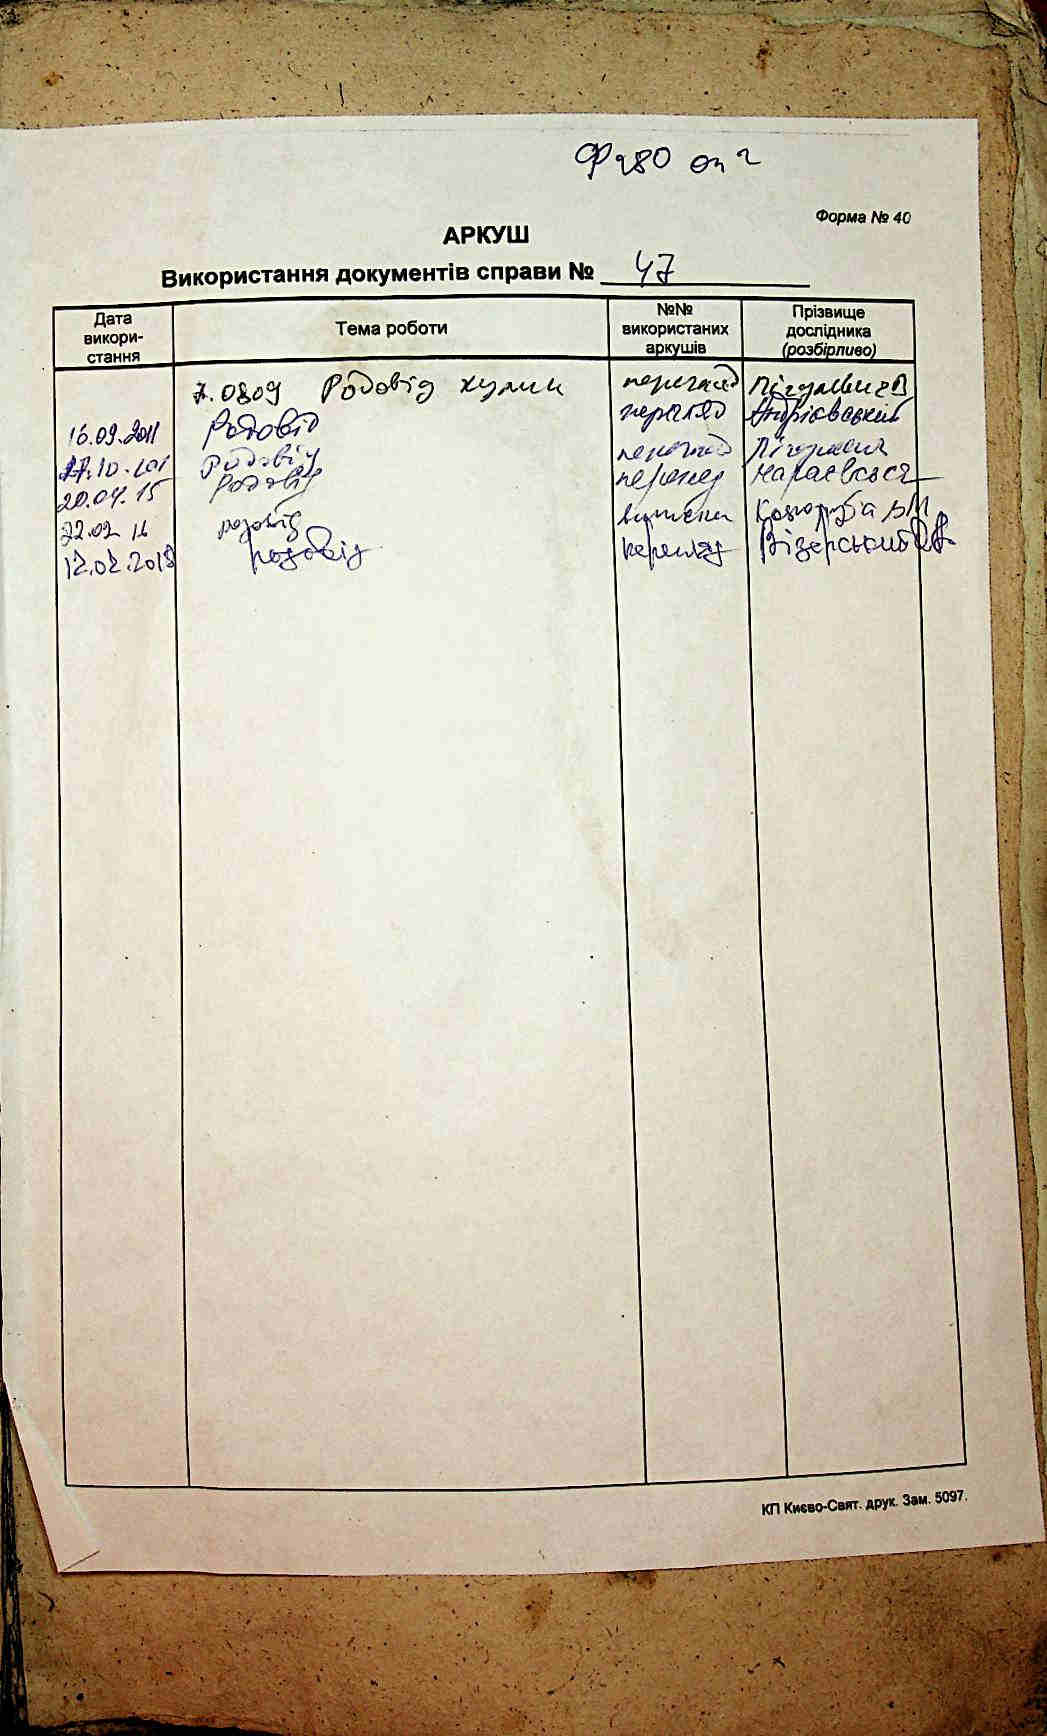 Ф 280 оп 2
Форма № 40
АРКУШ
Використання документів справи № 47
Дата використання Тема роботи №№ використаних аркушів Прізвище дослідника (розбірливо)
Родовід перегляд
16.09.2011 Родовід перегляд Андрієвський
Родовід перегляд
20.04.15 Родовід перегляд Караєвська
22.02 16 родовід виписки
12.02.2018 родовід перегляд Візерський
КП Києво-Свят. друк. Зам. 5097.